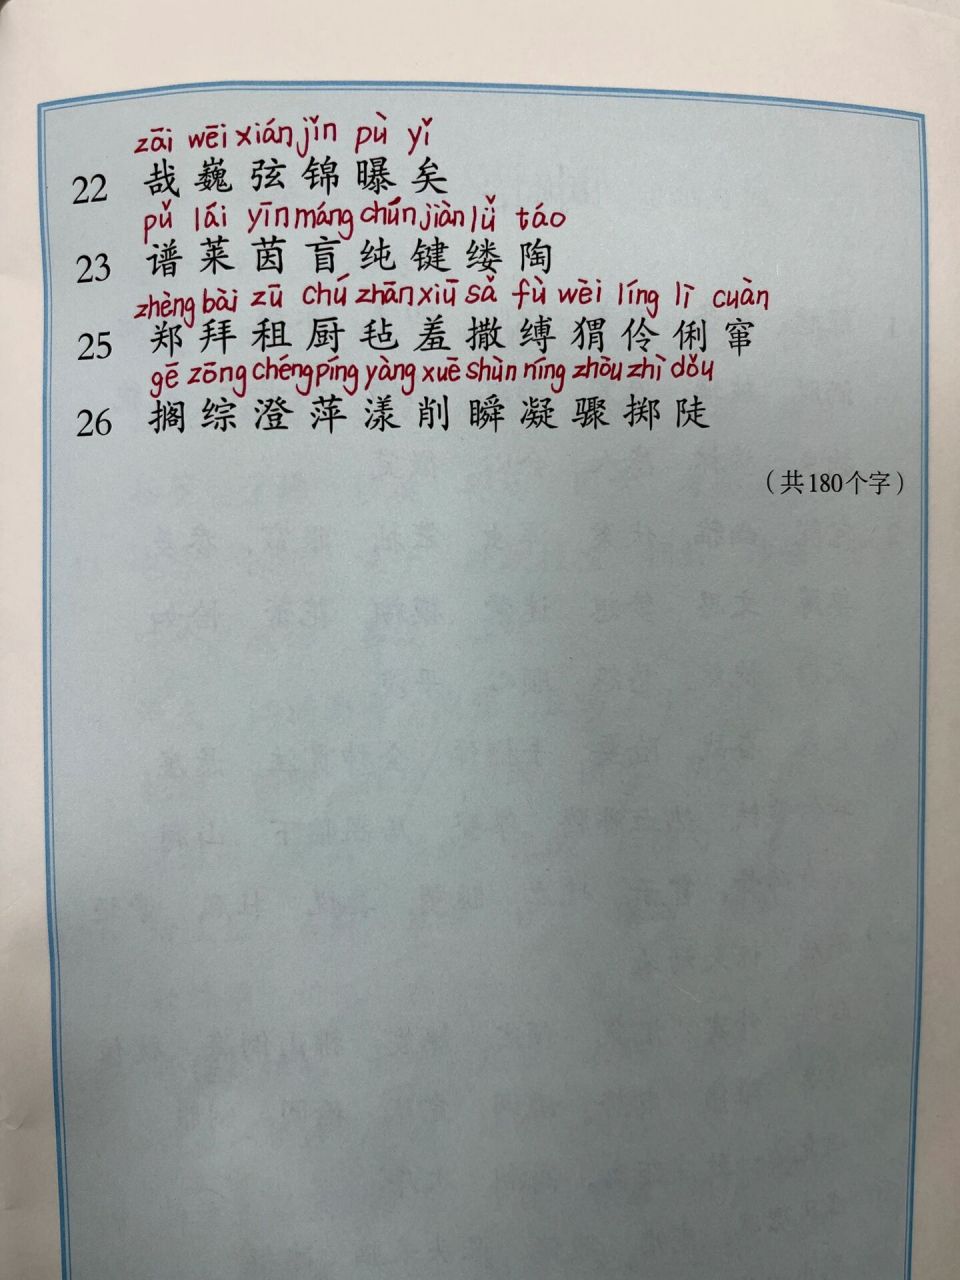 zāi wēi xián jǐn pù yǐ
22 哉 巍 弦 锦 曝 矣
pǔ lái yīn máng chún jiàn lǚ táo
23 谱 莱 茵 盲 纯 键 缕 陶
zhèng bài zū chú zhān xiū sǎ fù wèi líng lì cuàn
25 郑 拜 租 厨 毡 羞 撒 缚 猬 伶 俐 窜
gē zōng chéng píng yàng xuē shùn níng zhòu zhì dǒu
26 搁 综 澄 萍 漾 削 瞬 凝 骤 掷 陡
（共180个字）